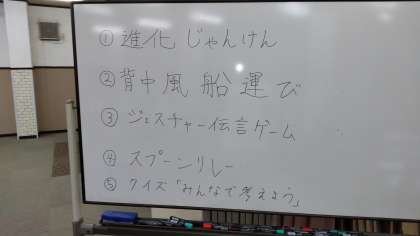 ① 進化じゃんけん
② 背中風船運び
③ ジェスチャー伝言ゲーム
④ スプーンリレー
⑤ クイズ「みんなで考えよう」